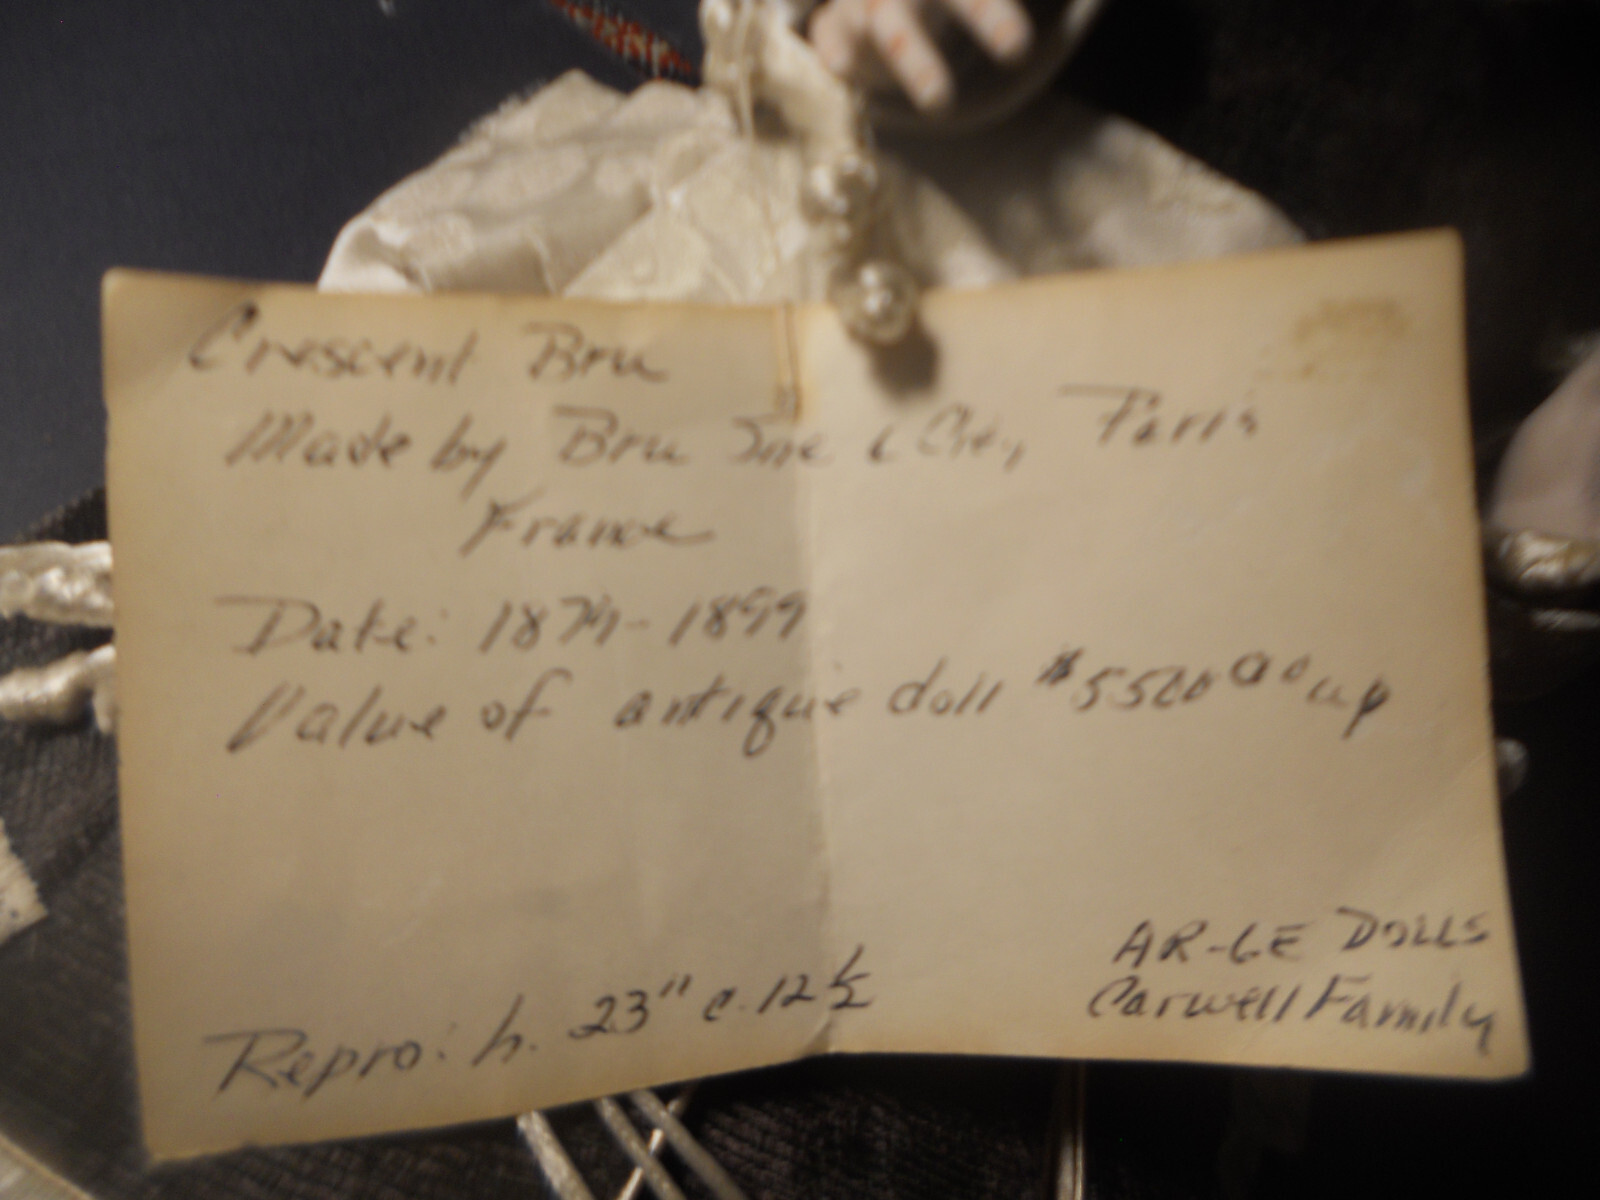 Crescent Bru
Made by Bru Jne & Cie, Paris
France
Date: 1874-1899
Value of antique doll $5500 00 up
Repro: h. 23" c. 12 ½
AR-GE DOLLS
Carwell Family